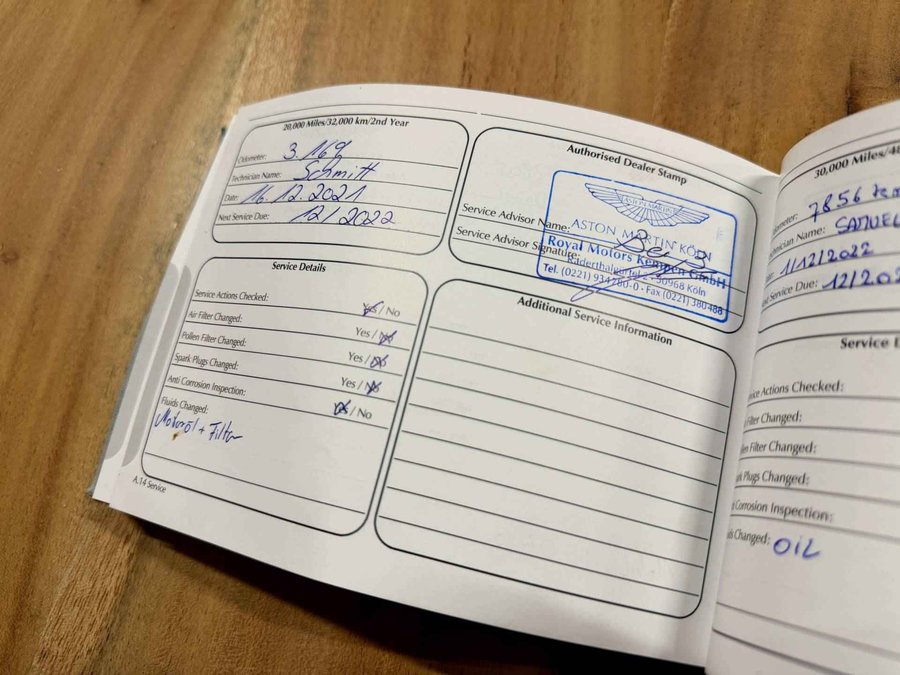 20,000 Miles/32,000 km/2nd Year
Odometer: 3.169
Technician Name: Schmitt
Date: 16.12.2021
Next Service Due: 12/2022
Authorised Dealer Stamp
ASTON MARTIN
Service Advisor Name:
ASTON MARTIN KÖLN
Service Advisor Signature:
Royal Motors Kempen GmbH
Raderthalgürtel 2 · 50968 Köln
Tel. (0221) 934780-0 · Fax (0221) 380488
Service Details
Service Actions Checked: Yes / No
Air Filter Changed: Yes / No
Pollen Filter Changed: Yes / No
Spark Plugs Changed: Yes / No
Anti Corrosion Inspection: Yes / No
Fluids Changed:
Motoröl + Filter
Additional Service Information
A.14 Service
30,000 Miles/48
7856 km
Technician Name: SAMUEL
1/12/2022
Next Service Due: 12/202
Service D
Service Actions Checked:
Filter Changed:
Pollen Filter Changed:
Spark Plugs Changed:
Corrosion Inspection:
Changed: OIL